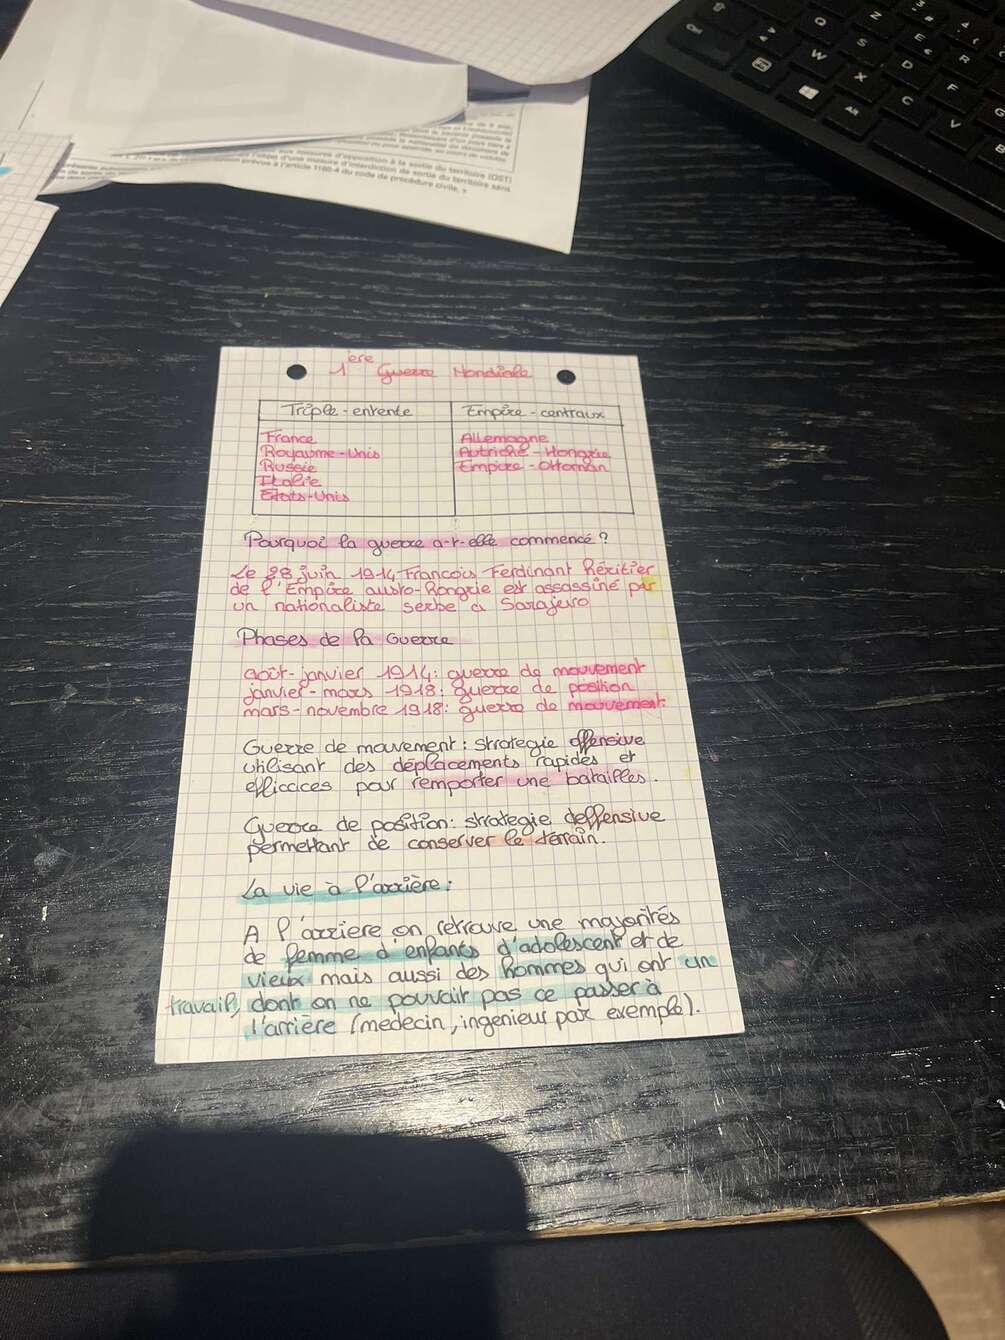 aux mesures d'opposition à la sortie du territoire (OST)
l'objet d'une mesure d'interdiction de sortie du territoire sans
prévues à l'article 1180-4 du code de procédure civile. »
1ère Guerre Mondiale
Triple-entente
Empire-centraux
France
Royaume-Unis
Russie
Italie
États-Unis
Allemagne
Autriche-Hongrie
Empire-Ottoman
Pourquoi la guerre a-t-elle commencé ?
Le 28 juin 1914, François Ferdinant héritier
de l'Empire austo-hongrie est assassiné par
un nationaliste serbe à Sarajevo
Phases de la Guerre
août-janvier 1914: guerre de mouvement
janvier-mars 1918: guerre de position
mars-novembre 1918: guerre de mouvement
Guerre de mouvement : strategie offensive
utilisant des déplacements rapides et
efficaces pour remporter une batailles.
Guerre de position: strategie deffensive
permettant de conserver le terrain.
La vie à l'arrière :
A l'arriere on retrouve une majorités
de femme d'enfants d'adolescent et de
vieux mais aussi des hommes qui ont un
travail, dont on ne pouvait pas ce passer à
l'arrière (medecin, ingenieur par exemple).
Ctrl
Alt
Q
Z
E
R
S
D
F
G
W
X
C
V
B